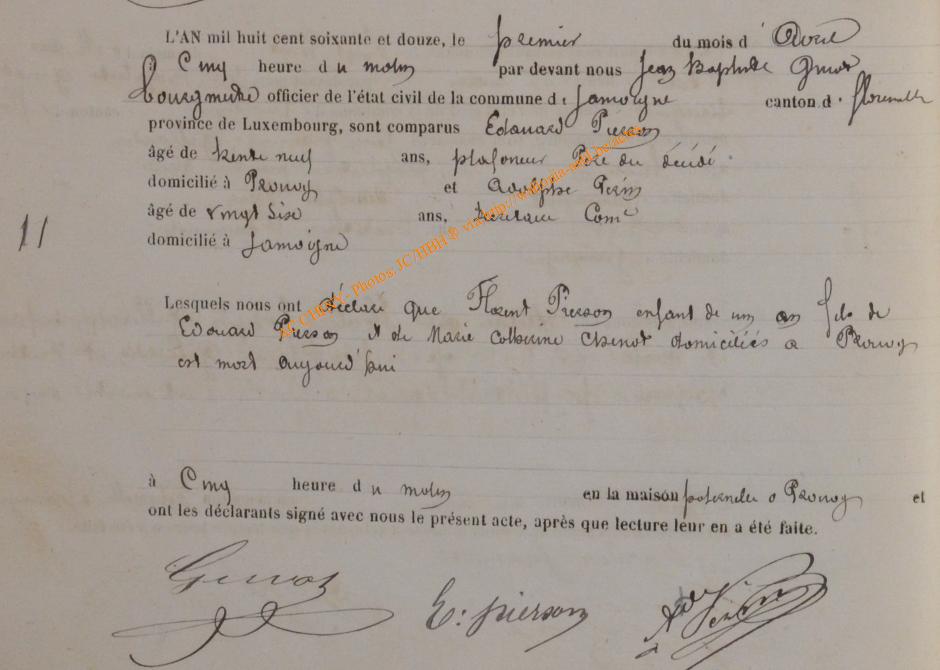 L'AN mil huit cent soixante et douze, le premier du mois d' Avril
à Cinq heure du matin par devant nous Jean Baptiste
bourgmestre officier de l'état civil de la commune de Jamoigne canton d. florenville
province de Luxembourg, sont comparus Edouard Pierson
âgé de trente neuf ans, plafoneur Père du décédé
domicilié à Prouvy et Adolphe
âgé de vingt Six ans, Com^e
domicilié à Jamoigne
11
Lesquels nous ont déclaré que Florent Pierson enfant de un an fils de
Edouard Pierson et de Marie Catherine Chenot domiciliés a Prouvy
est mort aujourd'hui
à Cinq heure du matin en la maison paternelle a Prouvy et
ont les déclarants signé avec nous le présent acte, après que lecture leur en a été faite.
E: pierson
Photos JC/HBH® via http://